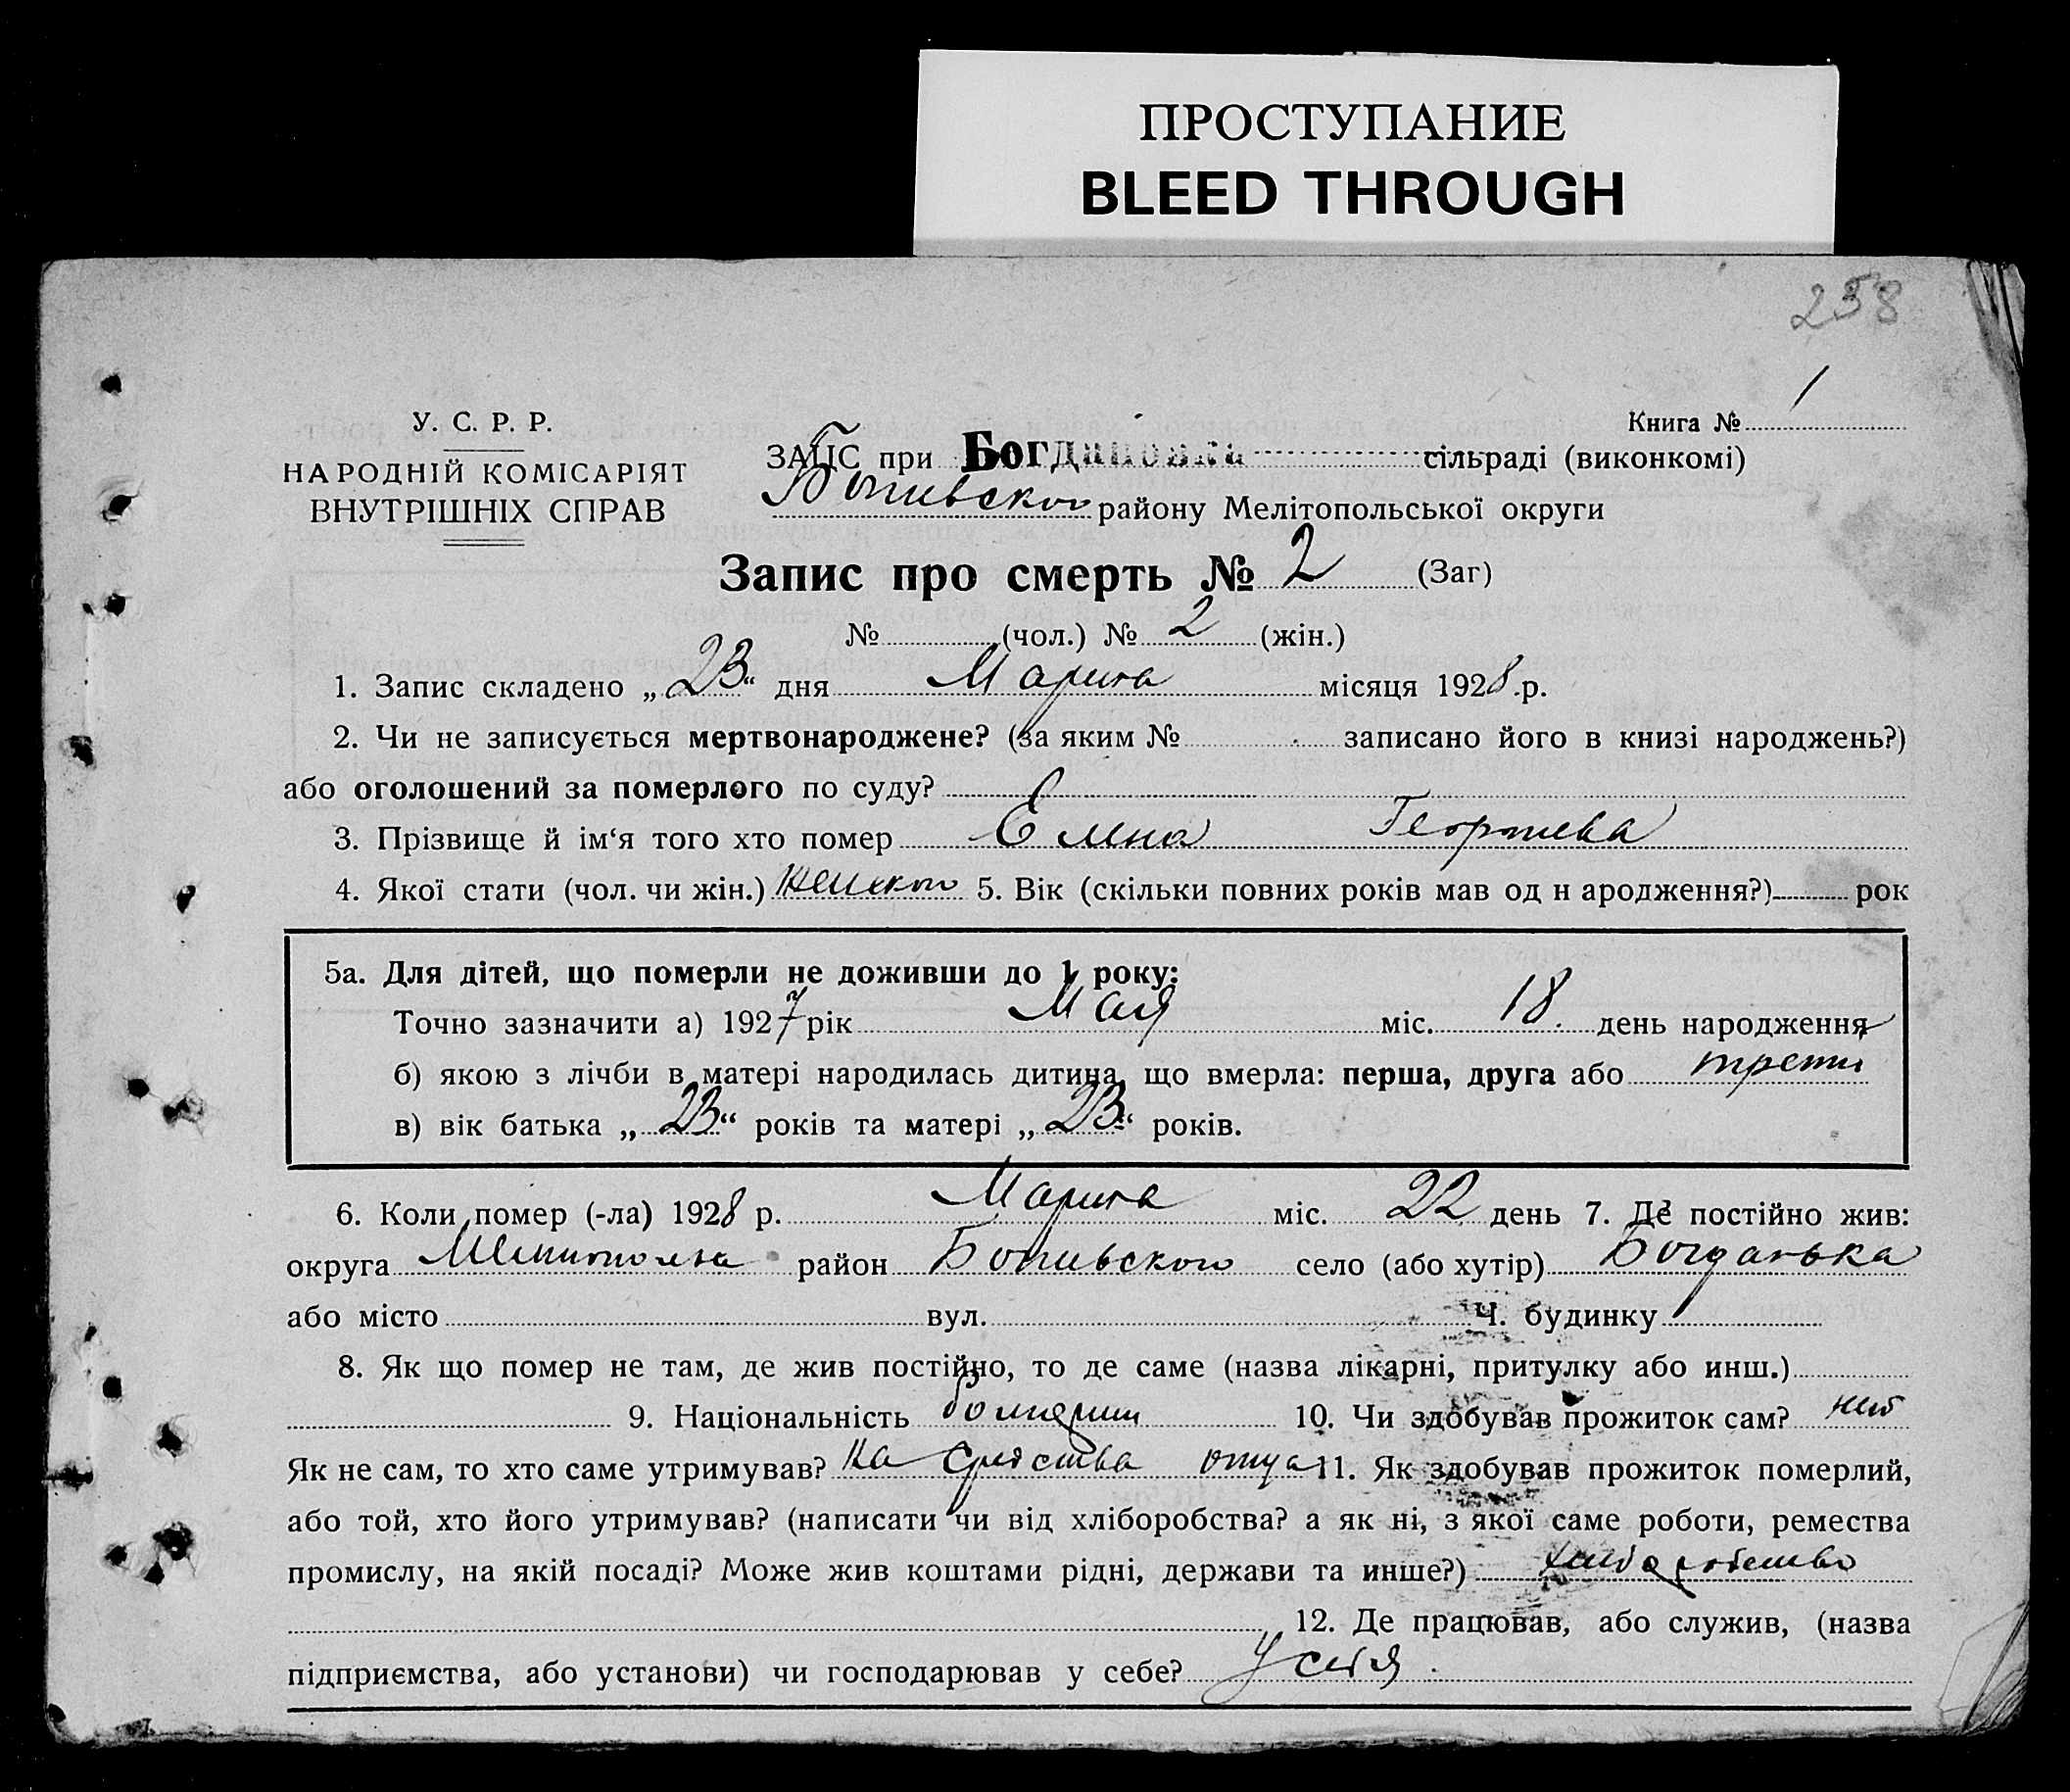 ПРОСТУПАНИЕ
BLEED THROUGH
238
Книга № 1
У. С. Р. Р.
НАРОДНІЙ КОМІСАРІЯТ
ВНУТРІШНІХ СПРАВ
ЗАПИС при Богдановка сільраді (виконкомі)
району Мелітопольської округи
Запис про смерть № 2 (Заг)
№ (чол.) № 2 (жін.)
1. Запис складено „23“ дня Марта місяця 1928 р.
2. Чи не записується мертвонароджене? (за яким № записано його в книзі народжень?)
або оголошений за померлого по суду?
3. Прізвище й ім‘я того хто помер Георгиева
4. Якої стати (чол. чи жін.) женского 5. Вік (скільки повних років мав од н ародження?) рок
5а. Для дітей, що померли не доживши до 1 року:
Точно зазначити а) 1927 рік Мая міс. 18 день народження
б) якою з лічби в матері народилась дитина, що вмерла: перша, друга або трети
в) вік батька „23“ років та матері „23“ років.
6. Коли помер (-ла) 1928 р. Марта міс. 22 день 7. Де постійно жив:
округа Мелитополя район Ботиевского село (або хутір)
або місто вул. Ч. будинку
8. Як що помер не там, де жив постійно, то де саме (назва лікарні, притулку або инш.)
9. Національність 10. Чи здобував прожиток сам? нет
Як не сам, то хто саме утримував? на средства отца 11. Як здобував прожиток померлий,
або той, хто його утримував? (написати чи від хліборобства? а як ні, з якої саме роботи, ремества
промислу, на якій посаді? Може жив коштами рідні, держави та инше?)
12. Де працював, або служив, (назва
підприємства, або установи) чи господарював у себе? У себя